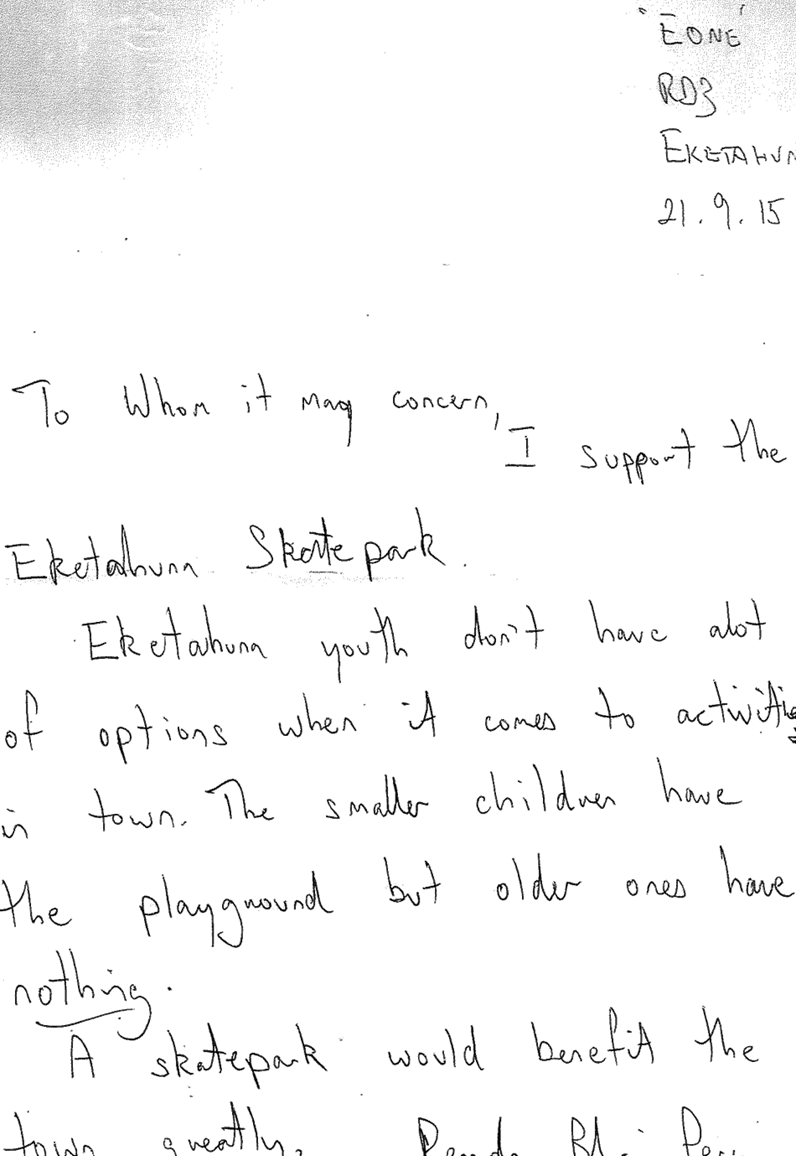 'EONE'
RD3
EKETAHUN
21.9.15
To Whom it may concern,
I support the
Eketahuna Skatepark.
Eketahuna youth don't have alot
of options when it comes to activities
in town. The smaller children have
the playground but older ones have
nothing.
A skatepark would benefit the
town greatly.